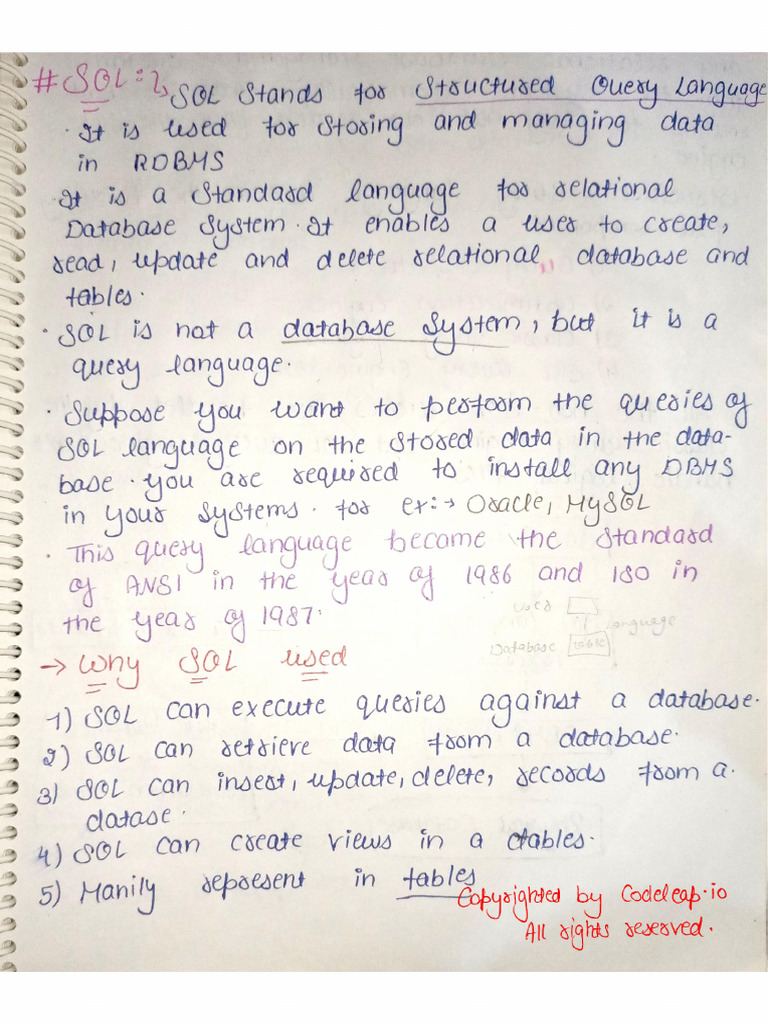 # SQL :→ SQL Stands for Structured Query Language
· It is used for storing and managing data
in RDBMS
· It is a Standard language for relational
Database System. It enables a user to create,
read, update and delete relational database and
tables.
· SQL is not a database System, but it is a
query language.
· Suppose you want to perform the queries of
SQL language on the stored data in the data-
base. you are required to install any DBMS
in your systems. for ex:→ Oracle, MySQL
· This query language became the standard
of ANSI in the year of 1986 and ISO in
the year of 1987.
User
language
Database table
→ Why SQL used
1) SQL can execute queries against a database.
2) SQL can retrieve data from a database.
3) SQL can insert, update, delete, records from a
datase.
4) SQL can create views in a tables.
5) Manily represent in tables
Copyrighted by Codeleap.io
All rights reserved.